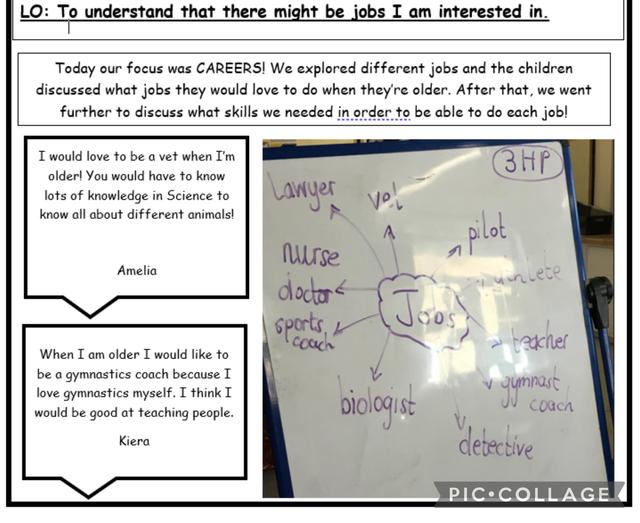 LO: To understand that there might be jobs I am interested in.
Today our focus was CAREERS! We explored different jobs and the children
discussed what jobs they would love to do when they're older. After that, we went
further to discuss what skills we needed in order to be able to do each job!
I would love to be a vet when I'm
older! You would have to know
lots of knowledge in Science to
know all about different animals!
Amelia
When I am older I would like to
be a gymnastics coach because I
love gymnastics myself. I think I
would be good at teaching people.
Kiera
3HP
Lawyer
vet
pilot
nurse
doctor
athlete
Jobs
sports
coach
teacher
gymnast
coach
biologist
detective
PIC•COLLAGE